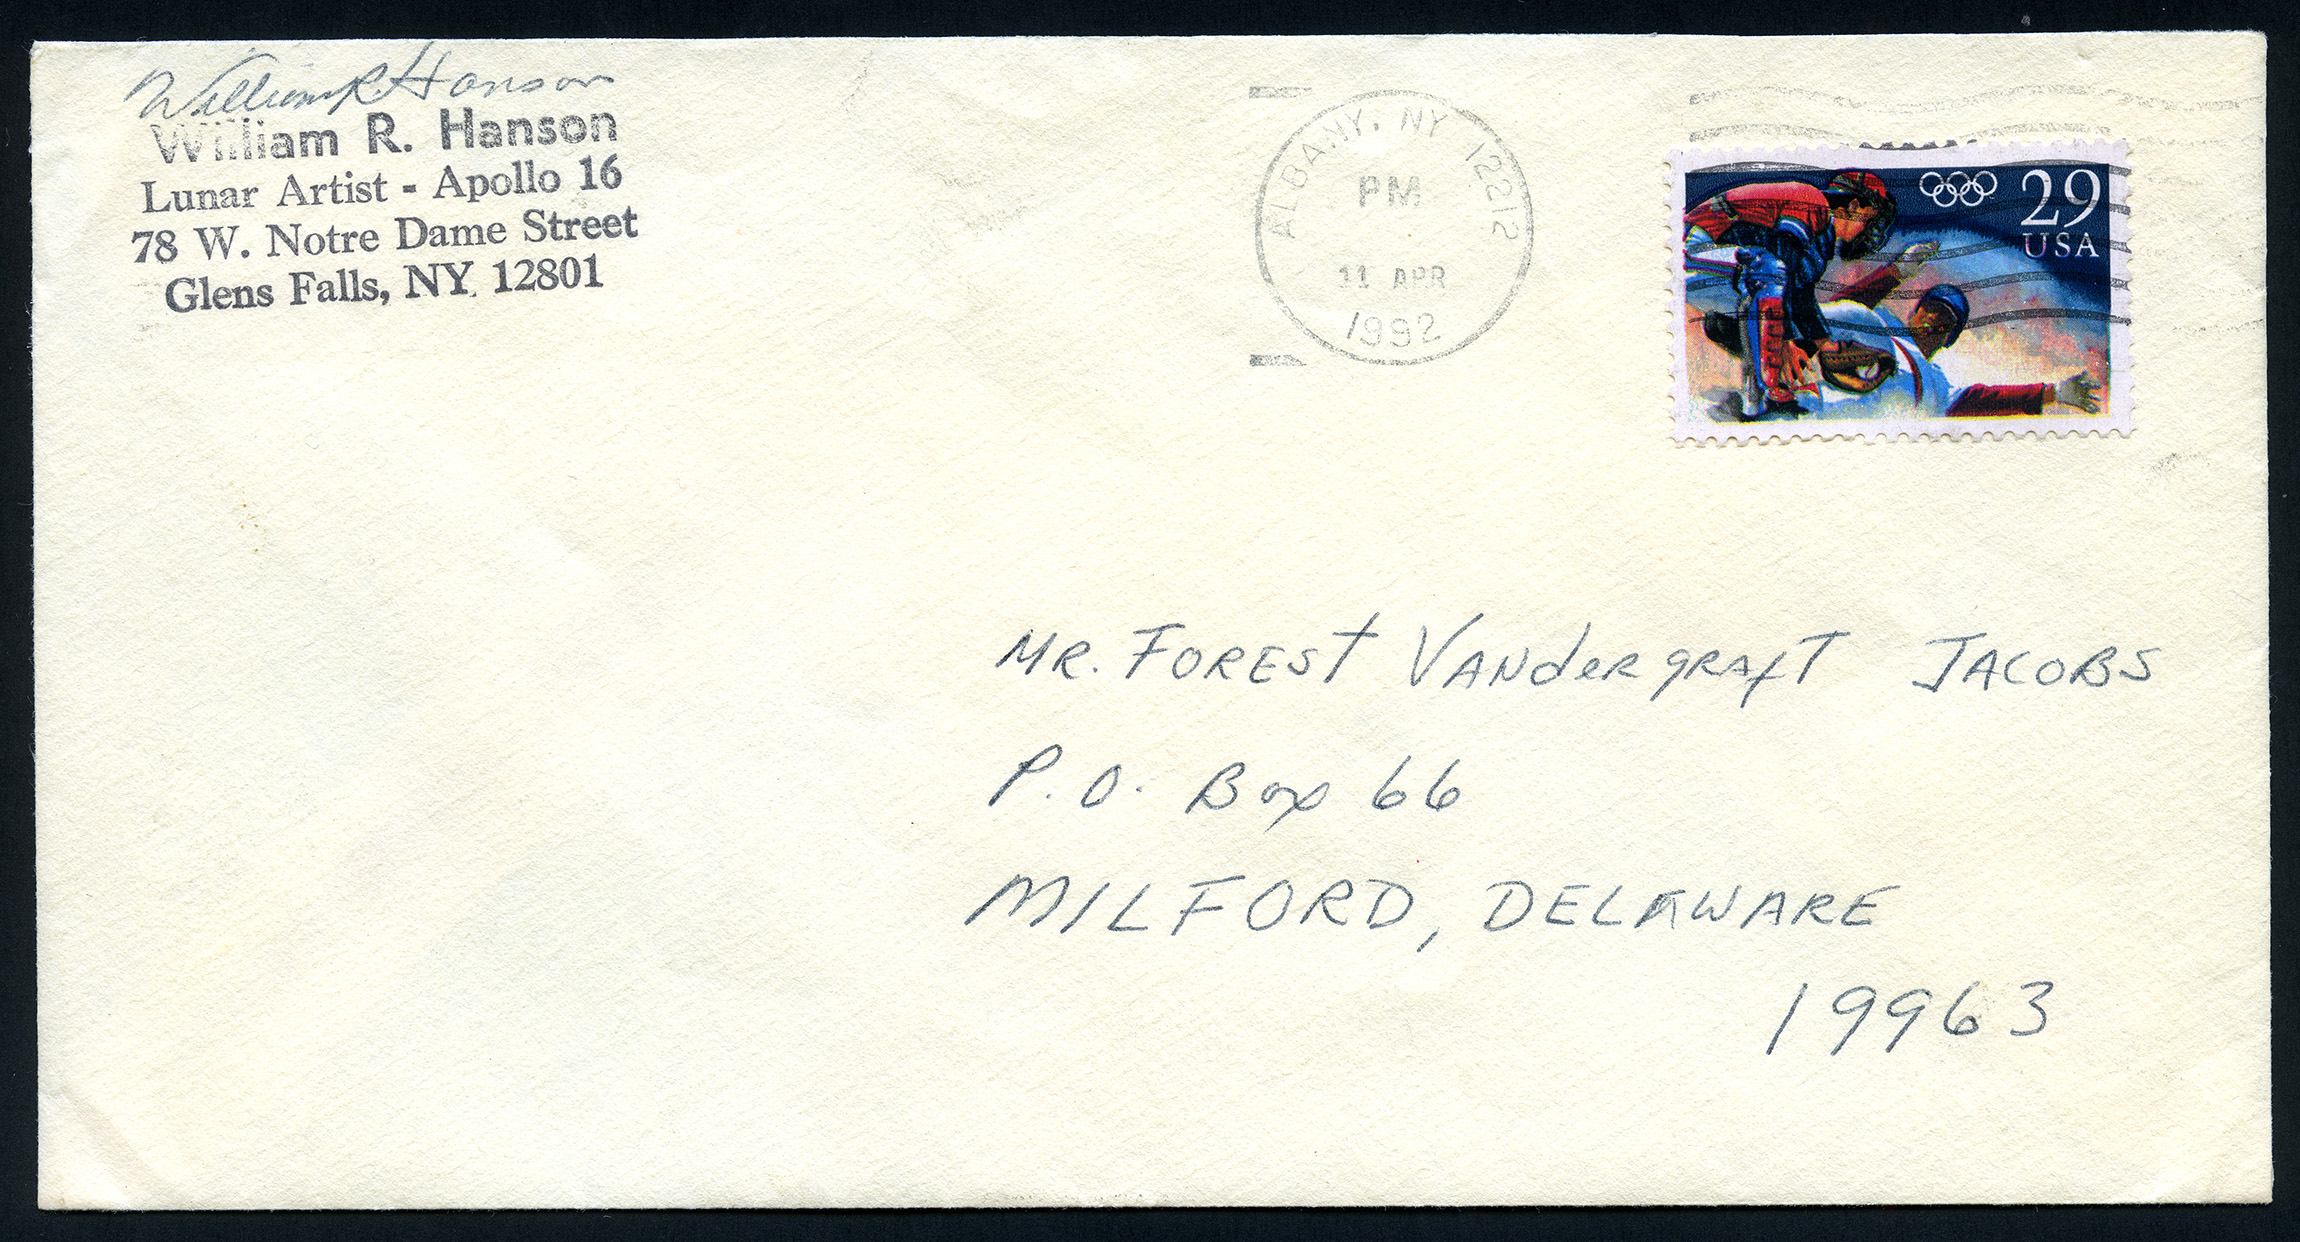 William R. Hanson
William R. Hanson
Lunar Artist - Apollo 16
78 W. Notre Dame Street
Glens Falls, NY 12801
ALBANY, NY 12212
PM
11 APR
1992
29
USA
MR. FOREST VANdERgRAfT JACOBS
P.O. Box 66
MILFORD, DELAWARE
19963